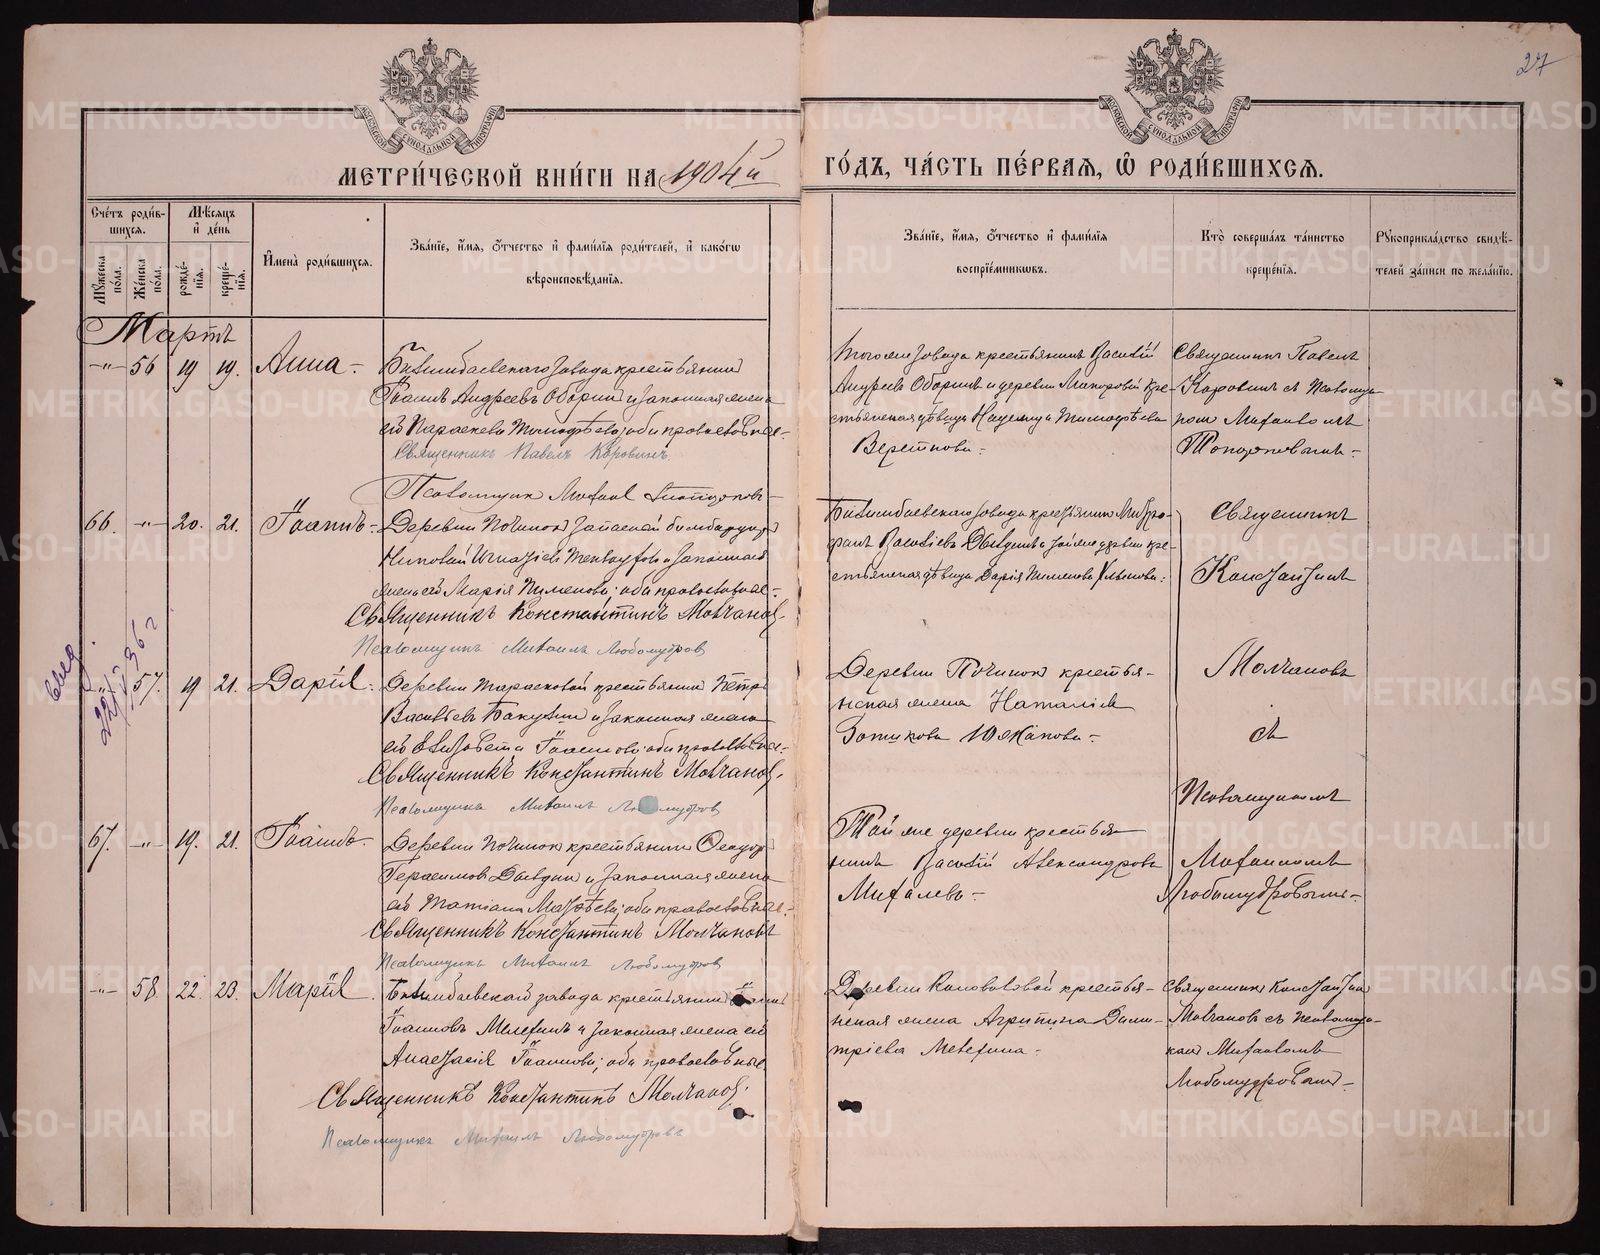 27
МЕТРИ́ЧЕСКОЙ КНИ́ГИ НА 1904й
ГО́ДЪ, ЧА́СТЬ ПЕ́РВАЯ, Ѡ҆ РОДИ́ВШИХСЯ.
Сче́тъ роди́в-
шихся.
Мѣ́сяцъ
и҆ де́нь
И҆мена̀ роди́вшихся.
Зва́нїе, и҆́мя, ѻ҆́тчество и҆ фами́лїя роди́телей, и҆ како́гѡ
вѣроисповѣ́данїя.
Зва́нїе, и҆́мя, ѻ҆́тчество и҆ фами́лїя
воспрїе́мникѡвъ.
Кто̀ соверша́лъ та́инство
креще́нїя.
Рꙋкоприкла́дство свидѣ́-
телей за́писи по жела́нїю.
Мꙋ́жеска
по́ла.
Же́нска
по́ла.
рожде́-
нїя.
креще́-
нїя.
Мартъ
-"- 56 19 19. Анна -
Билимбаевскаго завода крестьянинъ
Іоаннъ Андреевъ Оборинъ и законная жена
его Параскева Тимофѣева; оба православные.-
Священникъ Павелъ Коровинъ.
Псаломщикъ Михаилъ
тогоже завода крестьянинъ Василій
Андреевъ Оборинъ и деревни Макаровой кре-
стьянская дѣвица Надежда Тимофѣева
Веретнова.-
Священникъ Павелъ
Коровинъ съ Псаломщи-
комъ Михаиломъ
66. -"- 20. 21. Іоаннъ.-
Деревни Починокъ запасной бомбардиръ
законная
жена его Марія Пименова; оба православные.-
Священникъ Константинъ Молчановъ.
Псаломщикъ Михаилъ Любомудровъ
Билимбаевскаго завода крестьянинъ Митро-
фанъ Васильевъ Давыдинъ и той же дрвни кре-
стьянская дѣвица Дарія Пименова
Священникъ
Константинъ
Молчановъ
съ
Псаломщикомъ
Михаиломъ
Любомудровымъ.-
-"- 57. 19 21. Дарія.
Деревни Тарасковой крестьянинъ Петръ
Васильевъ Бакунинъ и законная жена
его Елизавета Іоаннова; оба православные.-
Священникъ Константинъ Молчановъ.
Псаломщикъ Михаилъ Любомудровъ
Деревни Починокъ крестья-
нская жена Наталія
Зотикова Южакова.-
67. -"- 19. 21. Іоаннъ.-
Деревни Починокъ крестьянинъ Ѳеодоръ
Герасимовъ Давыдинъ и законная жена
его Татіана Матѳѣева; оба православные.-
Священникъ Константинъ Молчановъ
Псаломщикъ Михаилъ Любомудровъ
Той же деревни крестья-
нинъ Василій Александровъ
Михалевъ.-
-"- 58. 22. 23. Марія.
Билимбаевскаго завода крестьянинъ Іоаннъ
Іоанновъ Мелехинъ и законная жена его
Анастасія Іоаннова; оба православные.
Священникъ Константинъ Молчановъ.
Псаломщикъ Михаилъ Любомудровъ
Деревни Коноваловой крестья-
нская жена Агрипина Дими-
тріева Мелехина.-
Священникъ Константинъ
Молчановъ съ Псаломщи-
комъ Михаиломъ
Любомудровымъ.-
METRIKI.GASO-URAL.RU